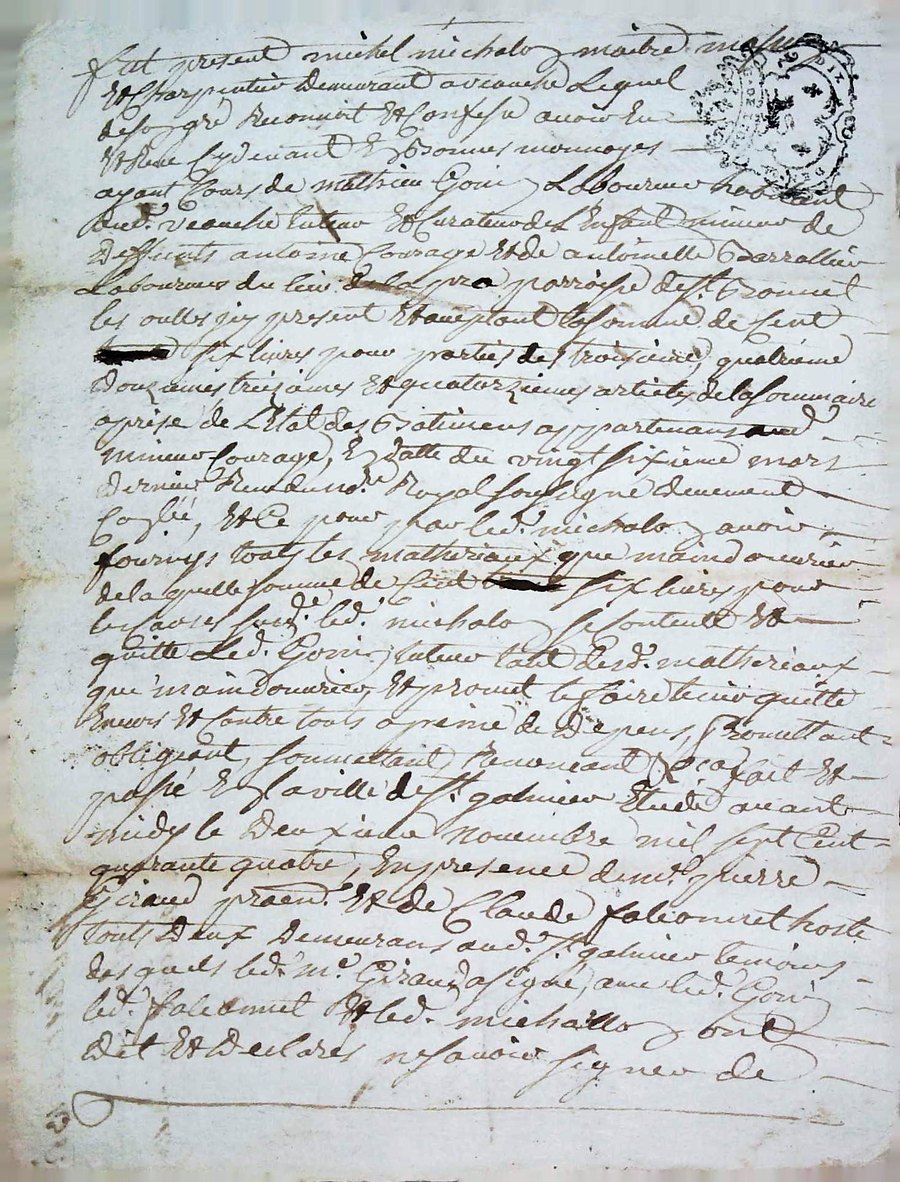 fut present michel michalo maitre masson
Et Charpentier Demeurant a veauche Lequel
de son gré Reconnoit Et Confesse avoir Eu
Et Receu Cydevant En Bonnes monnoyes
ayant Cours de mathieu Goin Laboureur habitant
aud. veauche tuteur Et Curateur de L'Enfant mineur de
Deffunts antoine Courage Et de antoinette Barrallier
Laboureurs du lieu de la parroisse de St. Bonnet
les oulles icy present Et acceptant la somme de Cent
six livres pour parties des troisieme, quatrieme
Douziemes treiziemes Et quatorziemes articles de la sommaire
aprise de L'Etat des Batimens appartenans aud.
mineur Courage, En datte du vingt sixieme mars
Dernier Receu du no.re Royal soussigné Deuement
Conllé, Et Ce pour par led. michalo avoir
fournys touts les matheriaux que maindoeuvrier
de laquelle somme de Cent six livres pour
les causes susd. led. michalo se Contente Et
quitte Led. Goin tuteur tant desd. matheriaux
que maindouvrier, Et promet le faire tenir quitte
Envers Et Contre touts a peine de Depens, Promettant
obligeant, soummettant Renonceant &ca fait Et
passé En la ville de St. galmier Etude avant
midy le Deuxieme Novembre mil sept Cent
quarante quatre, En presence de me. pierre
Giraud praen. Et de Claude falconnet hoste
touts Deux Demeurans aud. St. galmier temoins
des quels led. me. Giraud a signé, avec led. Goin
led. falconnet Et led. michallo ont
Dit Et Declarés ne savoir signer de